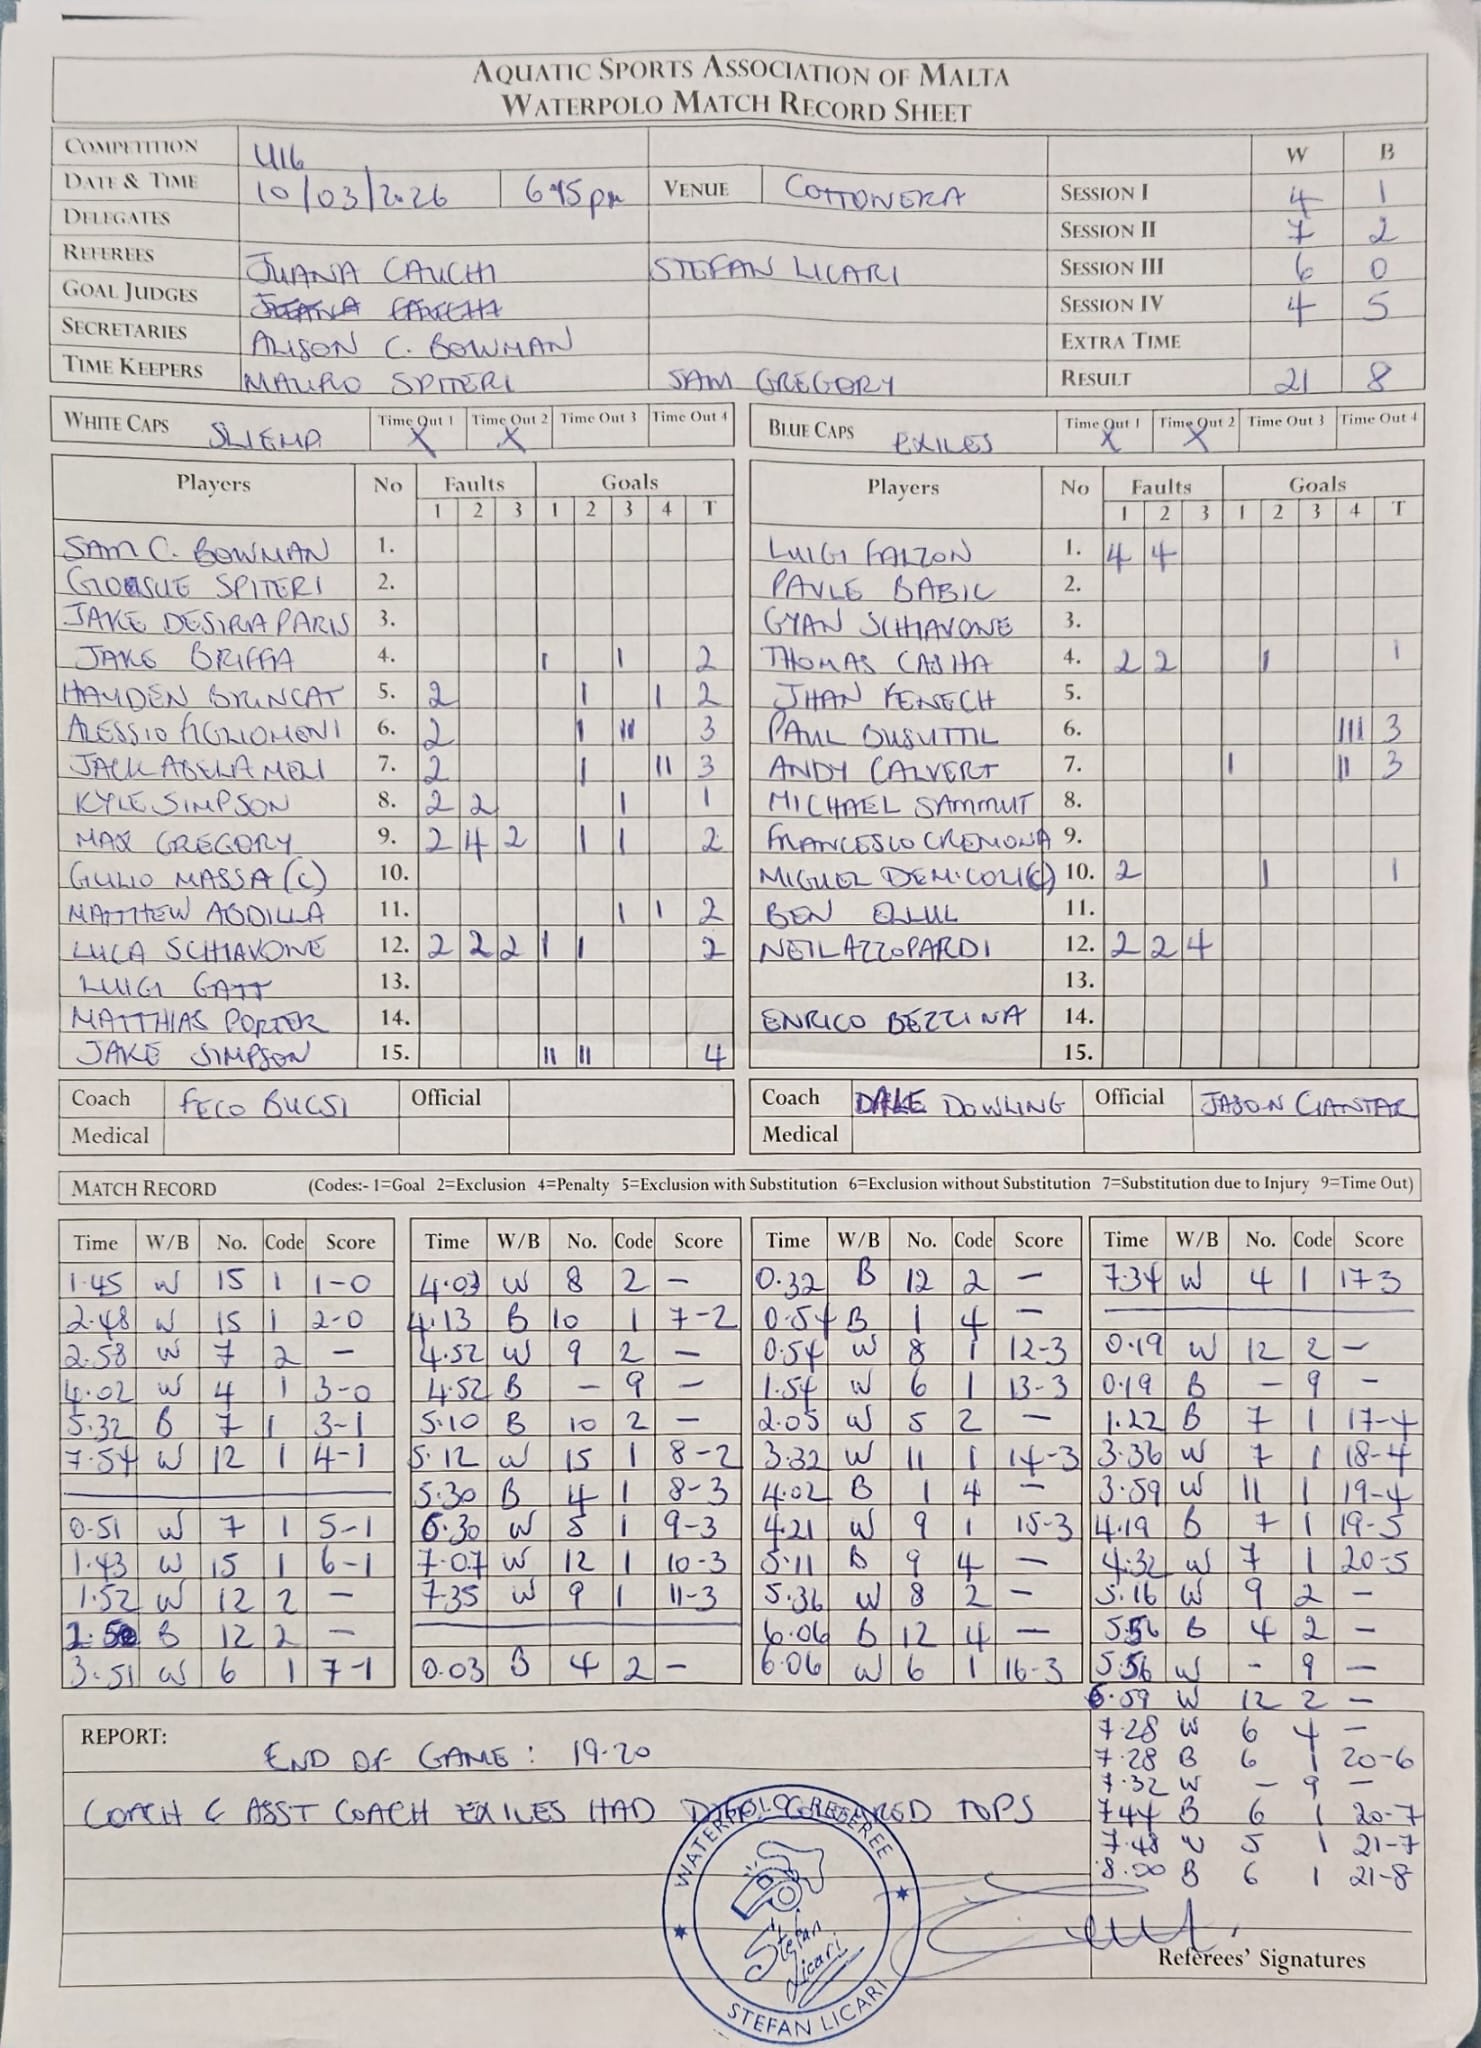 AQUATIC SPORTS ASSOCIATION OF MALTA
WATERPOLO MATCH RECORD SHEET
COMPETITION U16 W B
DATE & TIME 10/03/2026 6.45pm VENUE COTTONERA SESSION I 4 1
DELEGATES SESSION II 7 2
REFEREES JUANA CAUCHI STEFAN LICARI SESSION III 6 0
GOAL JUDGES SESSION IV 4 5
SECRETARIES ALISON C. BOWMAN EXTRA TIME
TIME KEEPERS MAURO SPITERI SAM GREGORY RESULT 21 8
WHITE CAPS SLIEMA Time Out 1 X Time Out 2 X Time Out 3 Time Out 4
BLUE CAPS EXILES Time Out 1 X Time Out 2 X Time Out 3 Time Out 4
Players No Faults Goals
1 2 3 1 2 3 4 T
SAM C. BOWMAN 1.
GIOSUE SPITERI 2.
JAKE DESIRA PARIS 3.
JAKE BRIFFA 4. I I 2
HAYDEN BRINCAT 5. 2 I I 2
ALESSIO FIGLIOMENI 6. 2 I II 3
JACK ABELA MELI 7. 2 I II 3
KYLE SIMPSON 8. 2 2 I 1
MAX GREGORY 9. 2 4 2 I I 2
GIULIO MASSA (C) 10.
MATTHEW ABDILLA 11. I I 2
LUCA SCHIAVONE 12. 2 2 2 I I 2
LUIGI GATT 13.
MATTHIAS PORTER 14.
JAKE SIMPSON 15. II II 4
Players No Faults Goals
1 2 3 1 2 3 4 T
LUIGI FALZON 1. 4 4
PAVLE BABIC 2.
GYAN SCHIAVONE 3.
THOMAS CASHA 4. 2 2 I 1
JHAN FENECH 5.
PAUL BUSUTTIL 6. III 3
ANDY CALVERT 7. I II 3
MICHAEL SAMMUT 8.
FRANCESCO CREMONA 9.
MIGUEL DEMICOLI (C) 10. 2 I 1
BEN ELLUL 11.
NEIL AZZOPARDI 12. 2 2 4
13.
ENRICO BEZZINA 14.
15.
Coach FECO BUCSI Official
Medical
Coach DALE DOWLING Official JASON CIANTAR
Medical
MATCH RECORD (Codes:- 1=Goal 2=Exclusion 4=Penalty 5=Exclusion with Substitution 6=Exclusion without Substitution 7=Substitution due to Injury 9=Time Out)
Time W/B No. Code Score
1.45 W 15 1 1-0
2.48 W 15 1 2-0
2.53 W 7 2 –
4.02 W 4 1 3-0
5.32 B 7 1 3-1
7.54 W 12 1 4-1
0.51 W 7 1 5-1
1.43 W 15 1 6-1
1.52 W 12 2 –
B 12 2 –
3.51 W 6 1 7-1
Time W/B No. Code Score
4.03 W 8 2 –
4.13 B 10 1 7-2
4.52 W 9 2 –
4.52 B – 9 –
5.10 B 10 2 –
5.12 W 15 1 8-2
5.30 B 4 1 8-3
6.30 W 5 1 9-3
7.07 W 12 1 10-3
7.35 W 9 1 11-3
0.03 B 4 2 –
Time W/B No. Code Score
0.32 B 12 2 –
0.54 B 1 4 –
0.54 W 8 1 12-3
1.54 W 6 1 13-3
2.05 W 5 2 –
3.32 W 11 1 14-3
4.02 B 1 4 –
4.21 W 9 1 15-3
5.11 B 9 4 –
5.36 W 8 2 –
6.06 B 12 4 –
6.06 W 6 1 16-3
Time W/B No. Code Score
7.34 W 4 1 17-3
0.19 W 12 2 –
0.19 B – 9 –
1.22 B 7 1 17-4
3.36 W 7 1 18-4
3.59 W 11 1 19-4
4.19 B 7 1 19-5
4.32 W 7 1 20-5
5.16 W 9 2 –
5.56 B 4 2 –
5.56 W – 9 –
6.59 W 12 2 –
7.28 W 6 4 –
7.28 B 6 1 20-6
7.32 W – 9 –
7.44 B 6 1 20-7
7.48 W 5 1 21-7
8.00 B 6 1 21-8
REPORT:
END OF GAME: 19.20
COACH & ASST COACH EXILES HAD TOPS
WATERPOLO REFEREE
Stefan Licari
STEFAN LICARI
Referees' Signatures